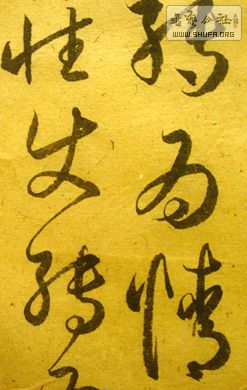 書藝公社
WWW.SHUFA.ORG
轉為情
性失轉